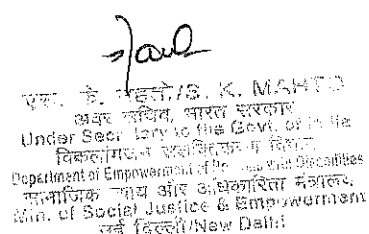 एस. के. महतो/S. K. MAHTO
अवर सचिव, भारत सरकार
Under Secretary to the Govt. of India
विकलांगजन सशक्तिकरण विभाग
Department of Empowerment of Persons with Disabilities
सामाजिक न्याय और अधिकारिता मंत्रालय
Min. of Social Justice & Empowerment
नई दिल्ली/New Delhi